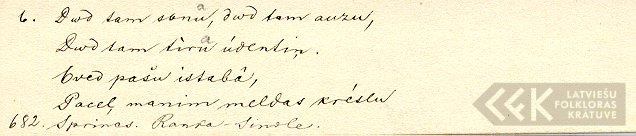 6. Dwd tam senâ, dwd tam auzu,
Dwd tam tirâ ûdentiņ.
Eved pašu istabâ,
Pacel, manim meldas krêslu
682. Sprinas. Ranka - Sinole.
LATVIEŠU
FOLKLORAS
KRĀTUVE